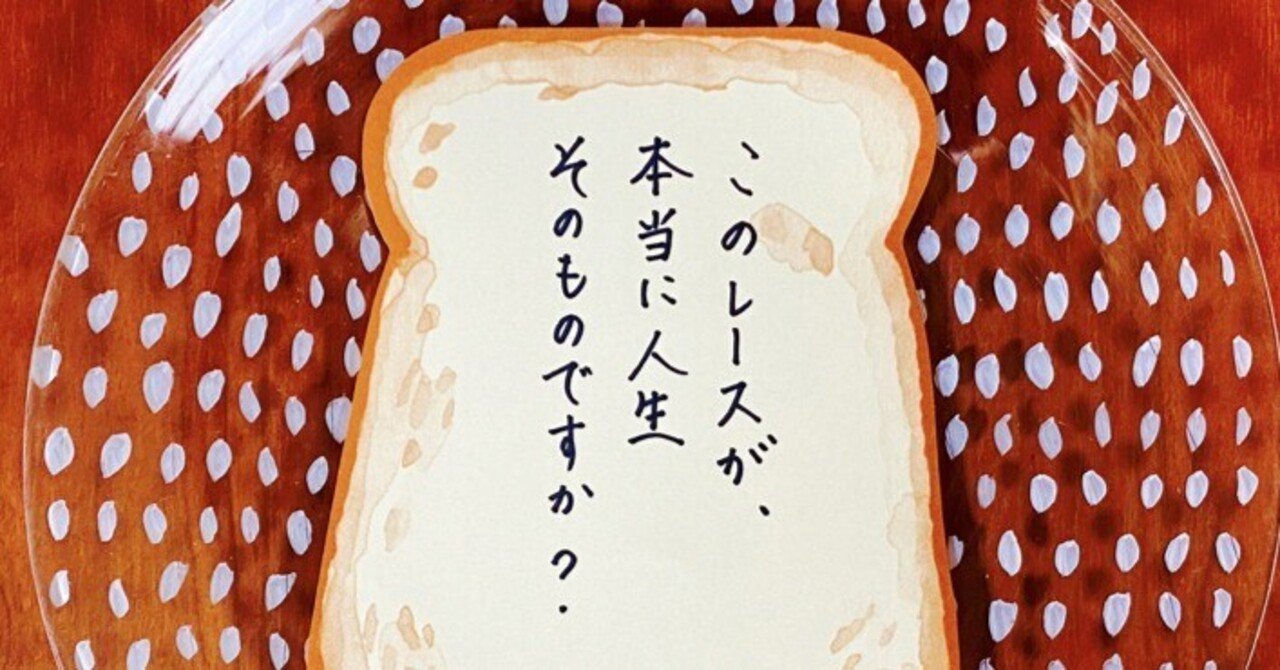 このレースが、
本当に人生
そのものですか？